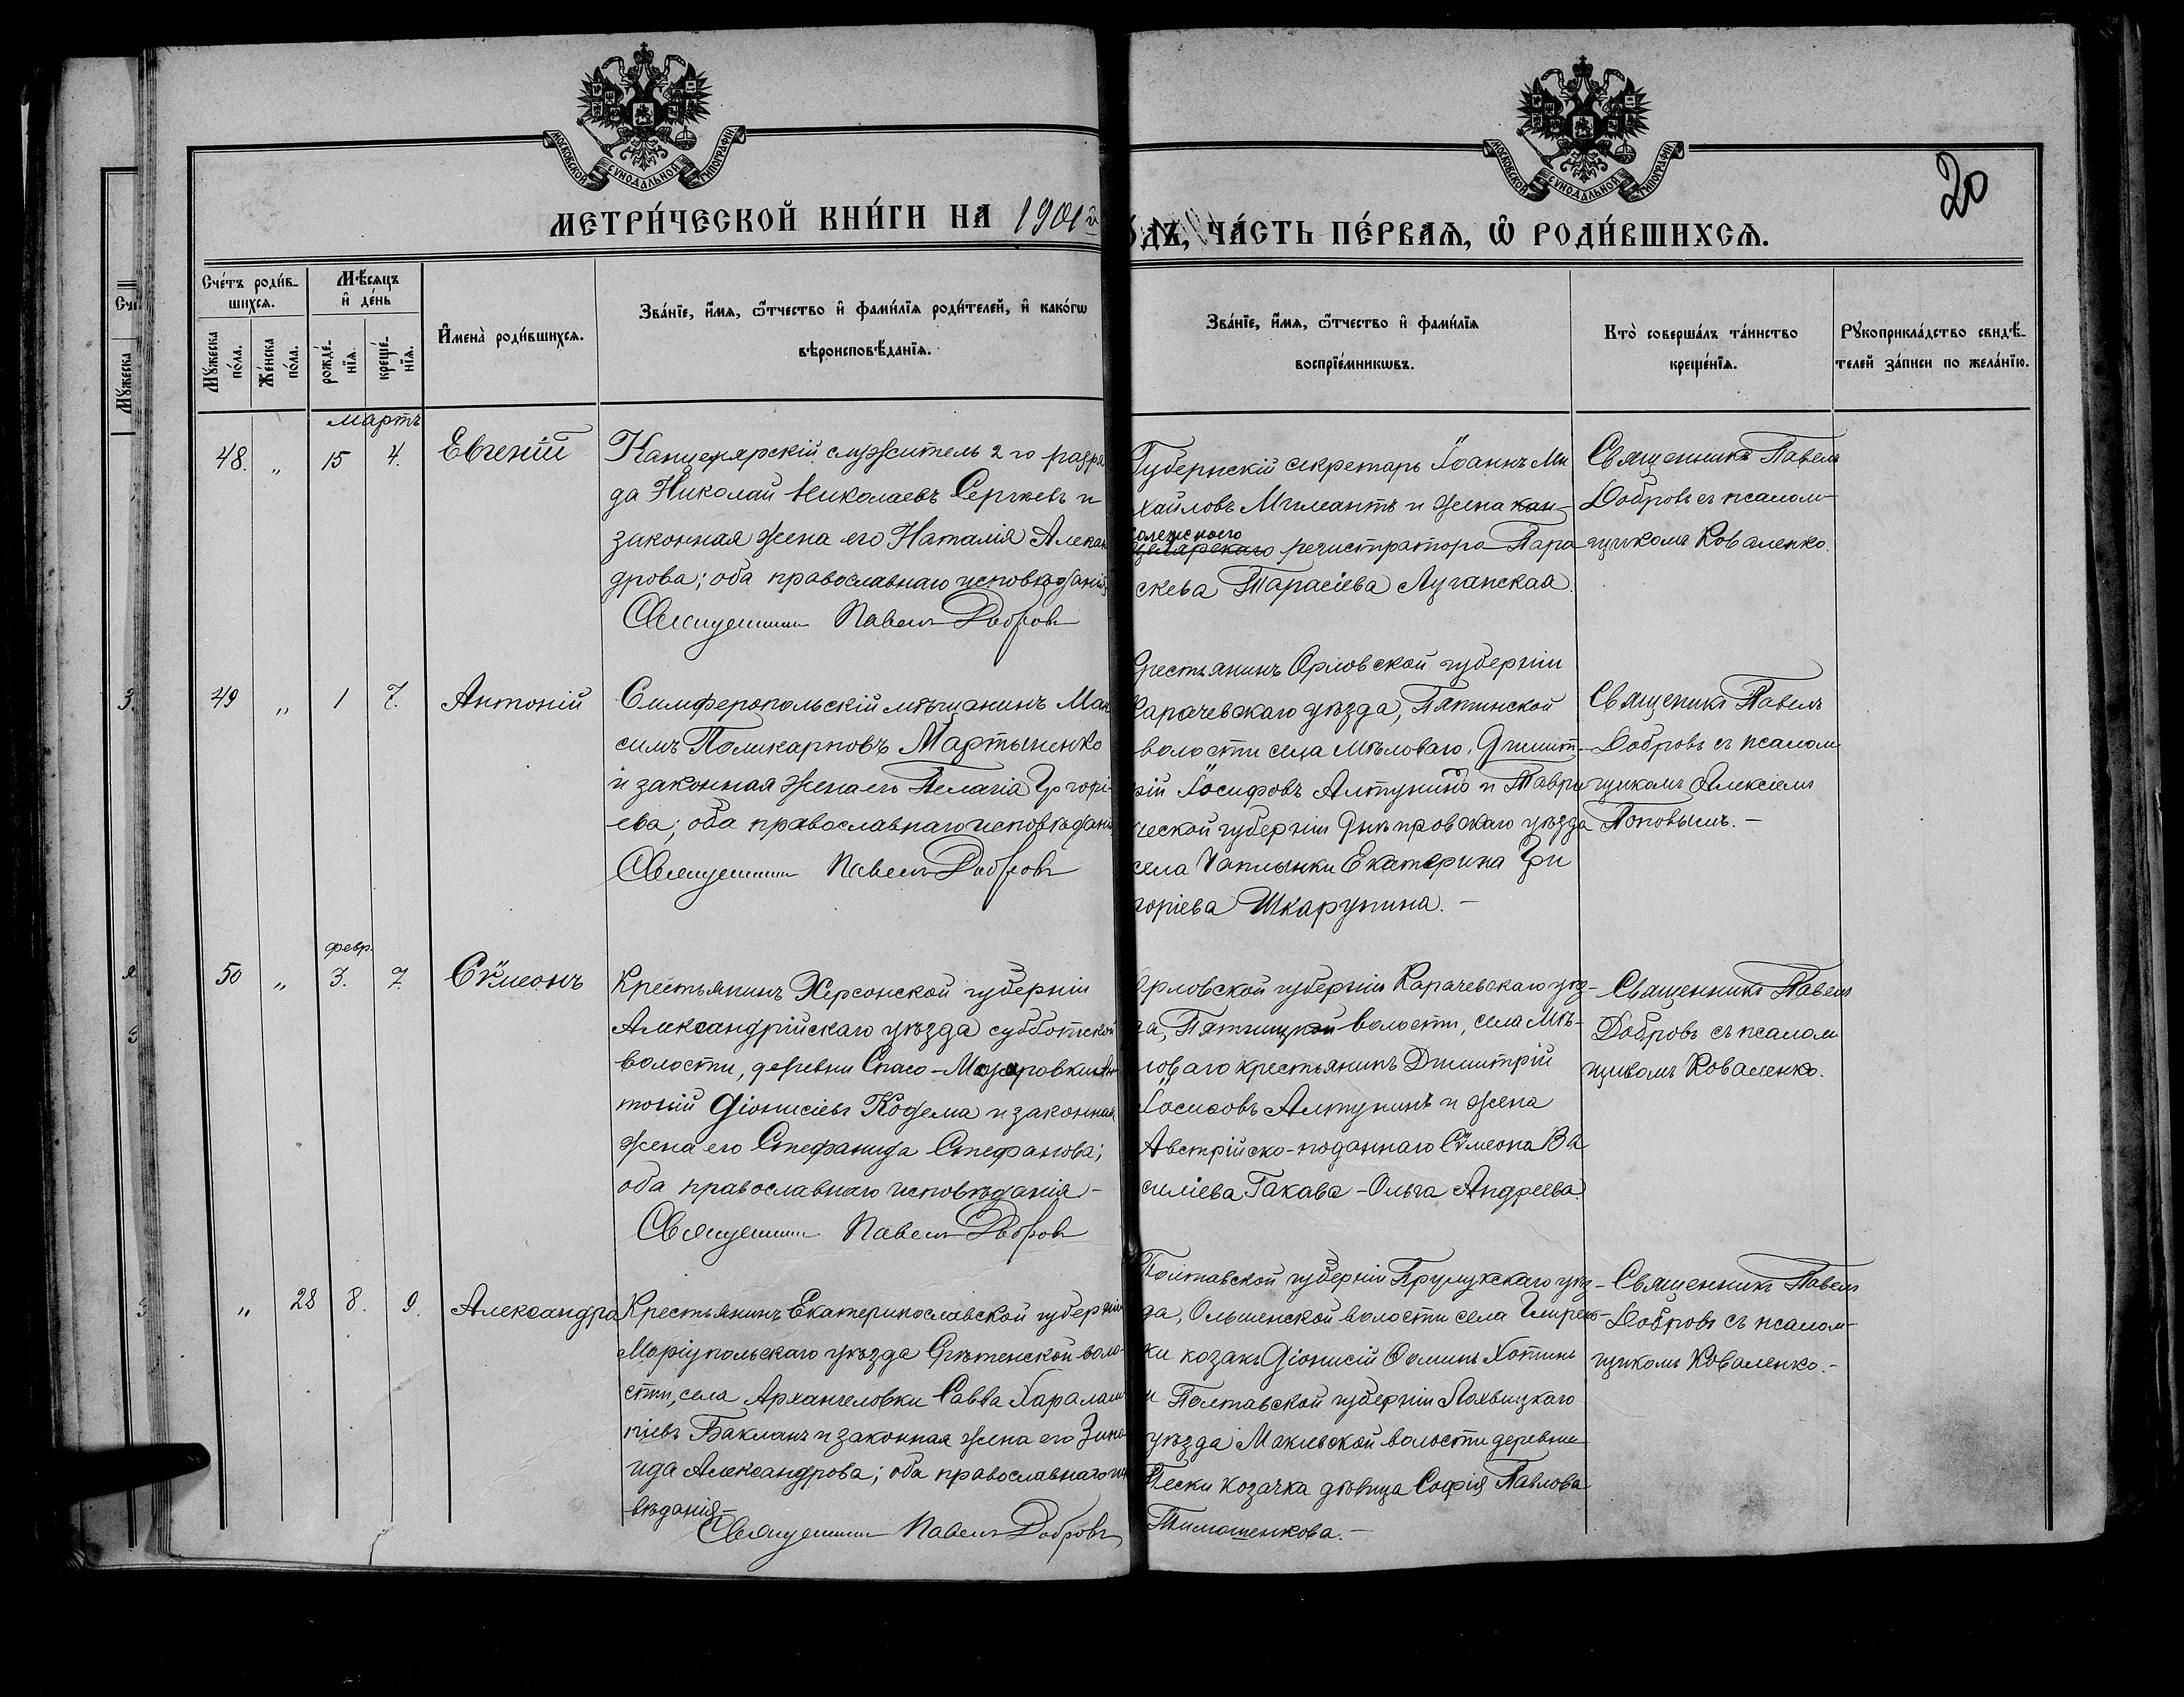 МОСКОВСКОЙ СУНОДАЛЬНОЙ ТИПОГРАФІИ
МОСКОВСКОЙ СУНОДАЛЬНОЙ ТИПОГРАФІИ
20
МЕТРИ́ЧЕСКОЙ КНИ́ГИ НА 1901й
ЧА́СТЬ ПЕ́РВАЯ, Ѡ РОДИ́ВШИХСЯ.
Сче́тъ роди́в-
шихся.
Мѣ́сяцъ
и҆ де́нь
Мꙋ́жеска
по́ла.
Же́нска
по́ла.
рожде́-
нїѧ.
креще́-
нїѧ.
И҆мена̀ роди́вшихся.
Зва́нїе, и҆́мѧ, ѻ҆́тчество и҆ фами́лїѧ роди́телей, и҆ како́гѡ
вѣроисповѣ́данїѧ.
Зва́нїе, и҆́мѧ, ѻ҆́тчество и҆ фами́лїѧ
воспрїе́мникѡвъ.
Кто̀ соверша́лъ та́инство
креще́нїѧ.
Рꙋкоприкла́дство свидѣ́-
телей за́писи по жела́нїю.
мартъ
48. „ 15 4. Евгеній
Канцелярскій служитель 2го разря
да Николай Николаевъ Сергѣевъ и
законная жена его Наталія Алексан
дрова; оба православнаго исповѣданія
Священникъ Павелъ Добровъ
Губернскій секретарь Іоаннъ Ми
хайловъ и жена кан-
коллежскаго
целярскаго регистратора Пара
скева Тарасіева Луганская.
Священникъ Павелъ
Добровъ съ псалом-
щикомъ Коваленко.
49 „ 1 7. Антоній
Симферопольскій мѣщанинъ Мак
симъ Поликарповъ Мартыненко
и законная жена его Пелагія Григорі-
ева; оба православнаго исповѣданія
Священникъ Павелъ Добровъ
Крестьянинъ Орловской губерніи
Карачевскаго уѣзда,
волости села Мѣловаго, Димит-
рій Іосифовъ Алтунинъ и Таври
ческой губерніи Днѣпровскаго уѣзда
села Чаплынки Екатерина Гри
горіева Шкарупина. –
Священикъ Павелъ
Добровъ съ псалом
щикомъ Алексіемъ
Поповымъ. –
февр.
50 „ 3. 7. Сѵмеонъ
Крестьянинъ Херсонской губерніи
Александрійскаго уѣзда субботской
волости, деревни Спасо-Мажаровки Ан
тоній Діонисіевъ Кодема и законная
жена его Стефанида Стефанова;
оба православнаго исповѣданія –
Священникъ Павелъ Добровъ
Орловской губерніи Карачевскаго уѣз-
да, Пятницкой волости, села Мѣ-
ловаго крестьянинъ Димитрій
Іосифовъ Алтунинъ и жена
Австрійско-поданнаго Сѵмеона Ва
силіева Гакава – Ольга Андреева.
Священникъ Павелъ
Добровъ съ псалом
щикомъ Коваленко.
„ 28 8. 9. Александра
Крестьянинъ Екатеринославской губерніи
Маріупольскаго уѣзда Срѣтенской воло-
сти, села Архангеловки Савва Харалам
піевъ Бакланъ и законная жена его Зина
ида Александрова; оба православнаго испо
вѣданія –
Священникъ Павелъ Добровъ
Полтавской губерніи Прилукскаго уѣз-
да, Ольшенской волости села
ки козакъ Діонисій Ѳоминъ Хотинъ
и Полтавской губерніи Лохвицкаго
уѣзда волости деревни
Пески козачка дѣвица Софія Павлова
Тимошенкова. –
Священникъ Павелъ
Добровъ съ псалом-
щикомъ Коваленко. –